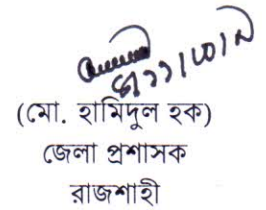 (মো. হামিদুল হক)
জেলা প্রশাসক
রাজশাহী